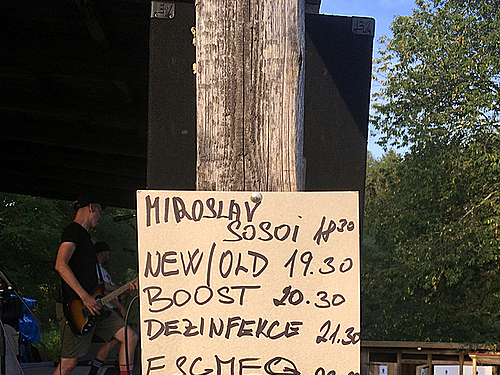 MIROSLAV
SOSOI 18³⁰
NEW/OLD 19.30
BOOST 20.30
DEZINFEKCE 21.30